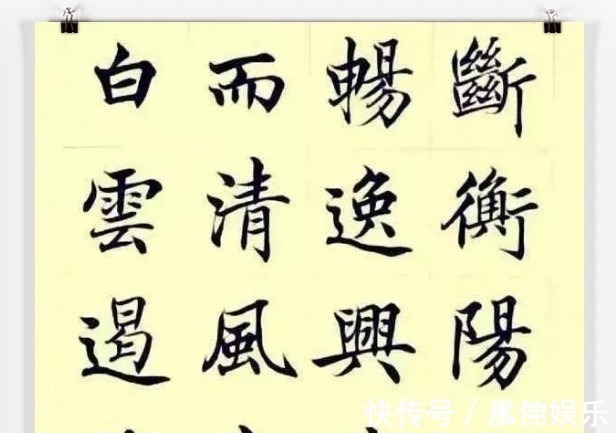 斷衡陽
暢逸興
而清風
白雲遏
快传号 / 娱乐